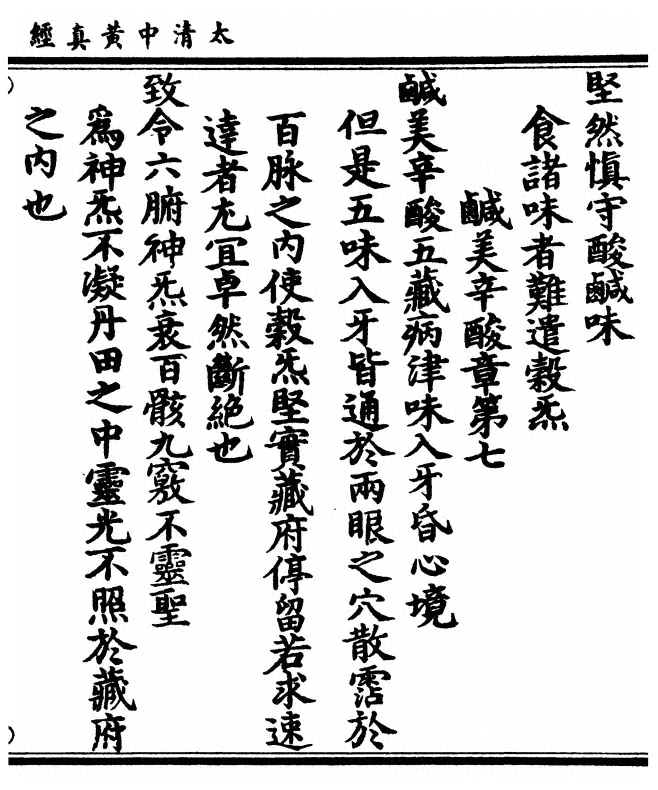 太清中黃真經
堅然慎守酸鹹味
食諸味者難遣穀炁
鹹美辛酸章第七
鹹美辛酸五藏病津味入牙昏心境
但是五味入牙皆通於兩眼之穴散霑於
百脉之內使穀炁堅實藏府停留若求速
達者尤冝卓然斷絕也
致令六腑神炁衰百骸九竅不靈聖
爲神炁不凝丹田之中靈光不照於藏府
之內也